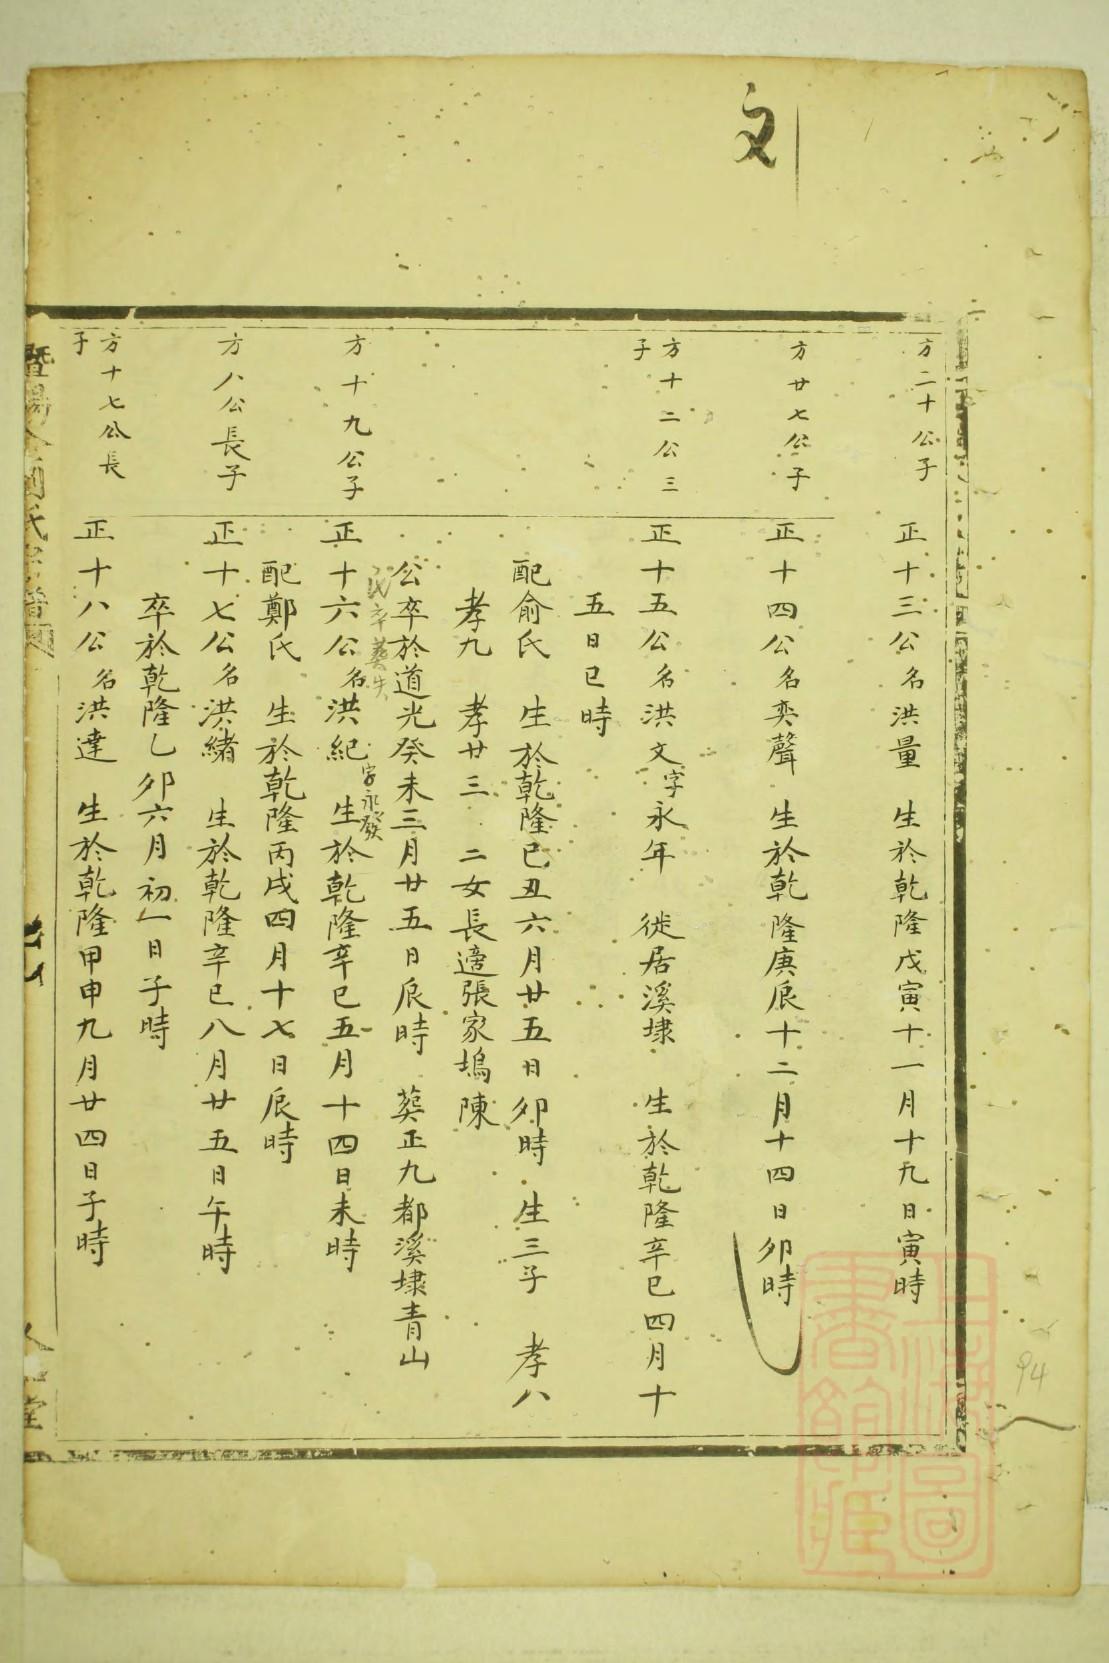 文
方二十公子
正十三公名洪量　生於乾隆戊寅十一月十九日寅時
方廿七公子
正十四公名奕聲　生於乾隆庚辰十二月十四日卯時
方十二公三
子
正十五公名洪文字永年　徙居溪埭　生於乾隆辛巳四月十
五日巳時
配俞氏　生於乾隆己丑六月廿五日卯時　生三子　孝八
孝九　孝廿三　二女長適張家塢陳
公卒於道光癸未三月廿五日辰時　葬正九都溪埭青山
氏卒葬失
方十九公子
正十六公名洪紀字永發　生於乾隆辛巳五月十四日未時
配鄭氏　生於乾隆丙戌四月十七日辰時
方八公長子
正十七公名洪緒　生於乾隆辛巳八月廿五日午時
卒於乾隆乙卯六月初一日子時
方十七公長
子
正十八公名洪達　生於乾隆甲申九月廿四日子時
暨陽
氏宗譜
堂
上海圖
書館藏
94